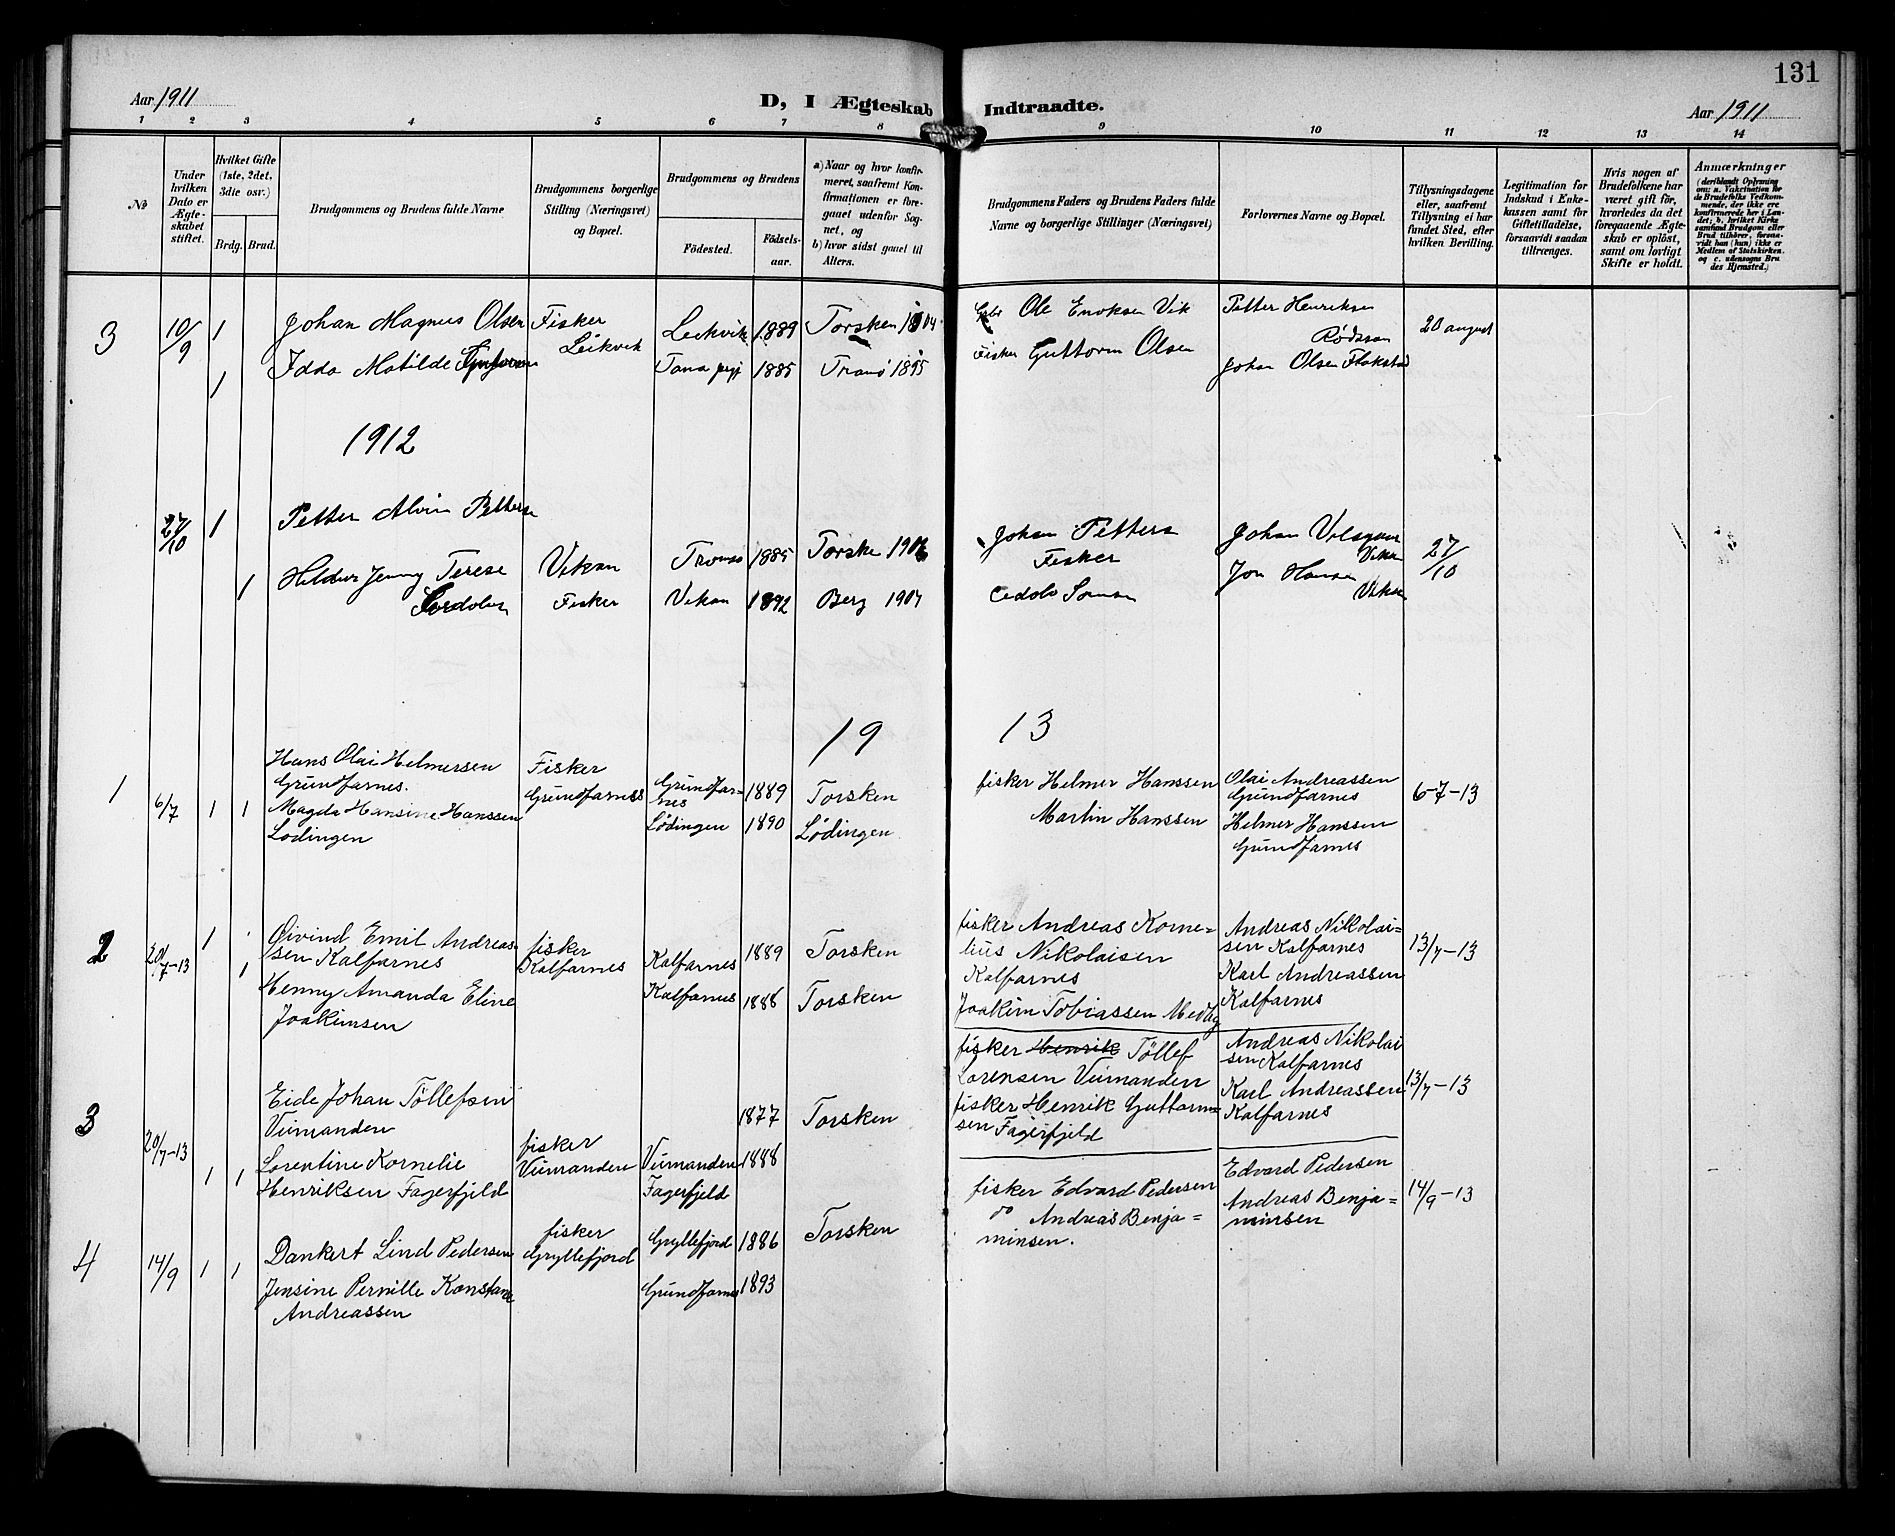 131
Aar 1911
D, I Ægteskab Indtraadte.
Aar 1911
1 2 3 4 5 6 7 8 9 10 11 12 13 14
№
Under hvilken Dato er Ægteskabet stiftet.
Hvilket Gifte (1ste, 2det, 3die osv.)
Brdg. Brud.
Brudgommens og Brudens fulde Navne
Brudgommens borgerlige Stilling (Næringsvei) og Bopæl.
Brudgommens og Brudens
Fødested.
Fødselsaar.
a) Naar og hvor konfirmeret, saafremt Konfirmationen er foregaaet udenfor Sognet, og
b) hvor sidst gaaet til Alters.
Brudgommens Faders og Brudens Faders fulde Navne og borgerlige Stillinger (Næringsvei)
Forlovernes Navne og Bopæl.
Tillysningsdagene eller, saafremt Tillysning ei har fundet Sted, efter hvilken Bevilling.
Legitimation for Indskud i Enkekassen samt for Giftetilladelse, forsaavidt saadan tiltrænges.
Hvis nogen af Brudefolkene har været gift før, hvorledes da det foregaaende Ægteskab er opløst, samt om lovligt Skifte er holdt.
Anmærkninger
(deriblandt Oplysning om: a. Vakcination for de Brudefolks Vedkommende, der ikke ere konfirmerede her i Landet; b. hvilket Kirkesamfund Brudgom eller Brud tilhører, forsaavidt han (hun) ikke er Medlem af Statskirken, og c. udensogns Brudes Hjemsted.)
3 10/9 1 Johan Magnus Olsen Fisker Leikvik 1889 Torsken 1904 Ole Enoksen Vik Petter Henriksen 20 august
Leikvik Rødsan
1 Idda Matilde Tana 1885 Tranø 1895 Fisker Guttorm Olsen Johan Olsen Flakstad
1912
27/10 1 Petter Alvin Petters
Johan Petters Johan
Hildur Jenny Terese Vikan Tromsø 1885 Torske 1906 Fisker Vikan 27/10
1 Fisker Vikan 1892 Berg 1907 Jon Hansen
Vikan
19 13
1 6/7 1 1 Hans Olai Helmersen Fisker
Grundfarnes. Grundfarnes Grundfarnes 1889 Torsken fisker Helmer Hanssen Olai Andreassen 6-7-13
Grundfarnes
Magda Hansine Hanssen Lødingen 1890 Lødingen Martin Hanssen Helmer Hanssen
Lodingen Grundfarnes
2 20/7-13 1 Øivind Emil Andreassen Kalfarnes fisker Kalfarnes Kalfarnes 1889 Torsken fisker Andreas Kornelius Nikolaisen Andreas Nikolaisen Kalfarnes 13/7-13
Kalfarnes Karl Andreassen
1 Henny Amanda Eline Kalfarnes 1888 Torsken Joakim Tobiassen Medby Kalfarnes
Joakimsen
fisker Henrik Tollef Andreas Nikolaisen Kalfarnes
3 20/7-13 Eide Johan Tøllefsen 1877 Torsken Lorensen Veimanden Karl Andreassen 13/7-13
Veimanden fisker Henrik Guttormsen Fagerfjeld Kalfarnes
1 1 Lorentine Kornelie fisker Veimanden Veimanden 1888
Henriksen Fagerfjeld Fagerfjeld
fisker Edvard Pedersen Edvard Pedersen 14/9-13
do Andreas Benjaminsen. Andreas Benjaminsen
4 14/9 1 1 Dankert Lind Pedersen fisker Gryllefjord Gryllefjord 1886 Torsken
Jensine Pernille Konstanse Grundfarnes 1893
Andreassen